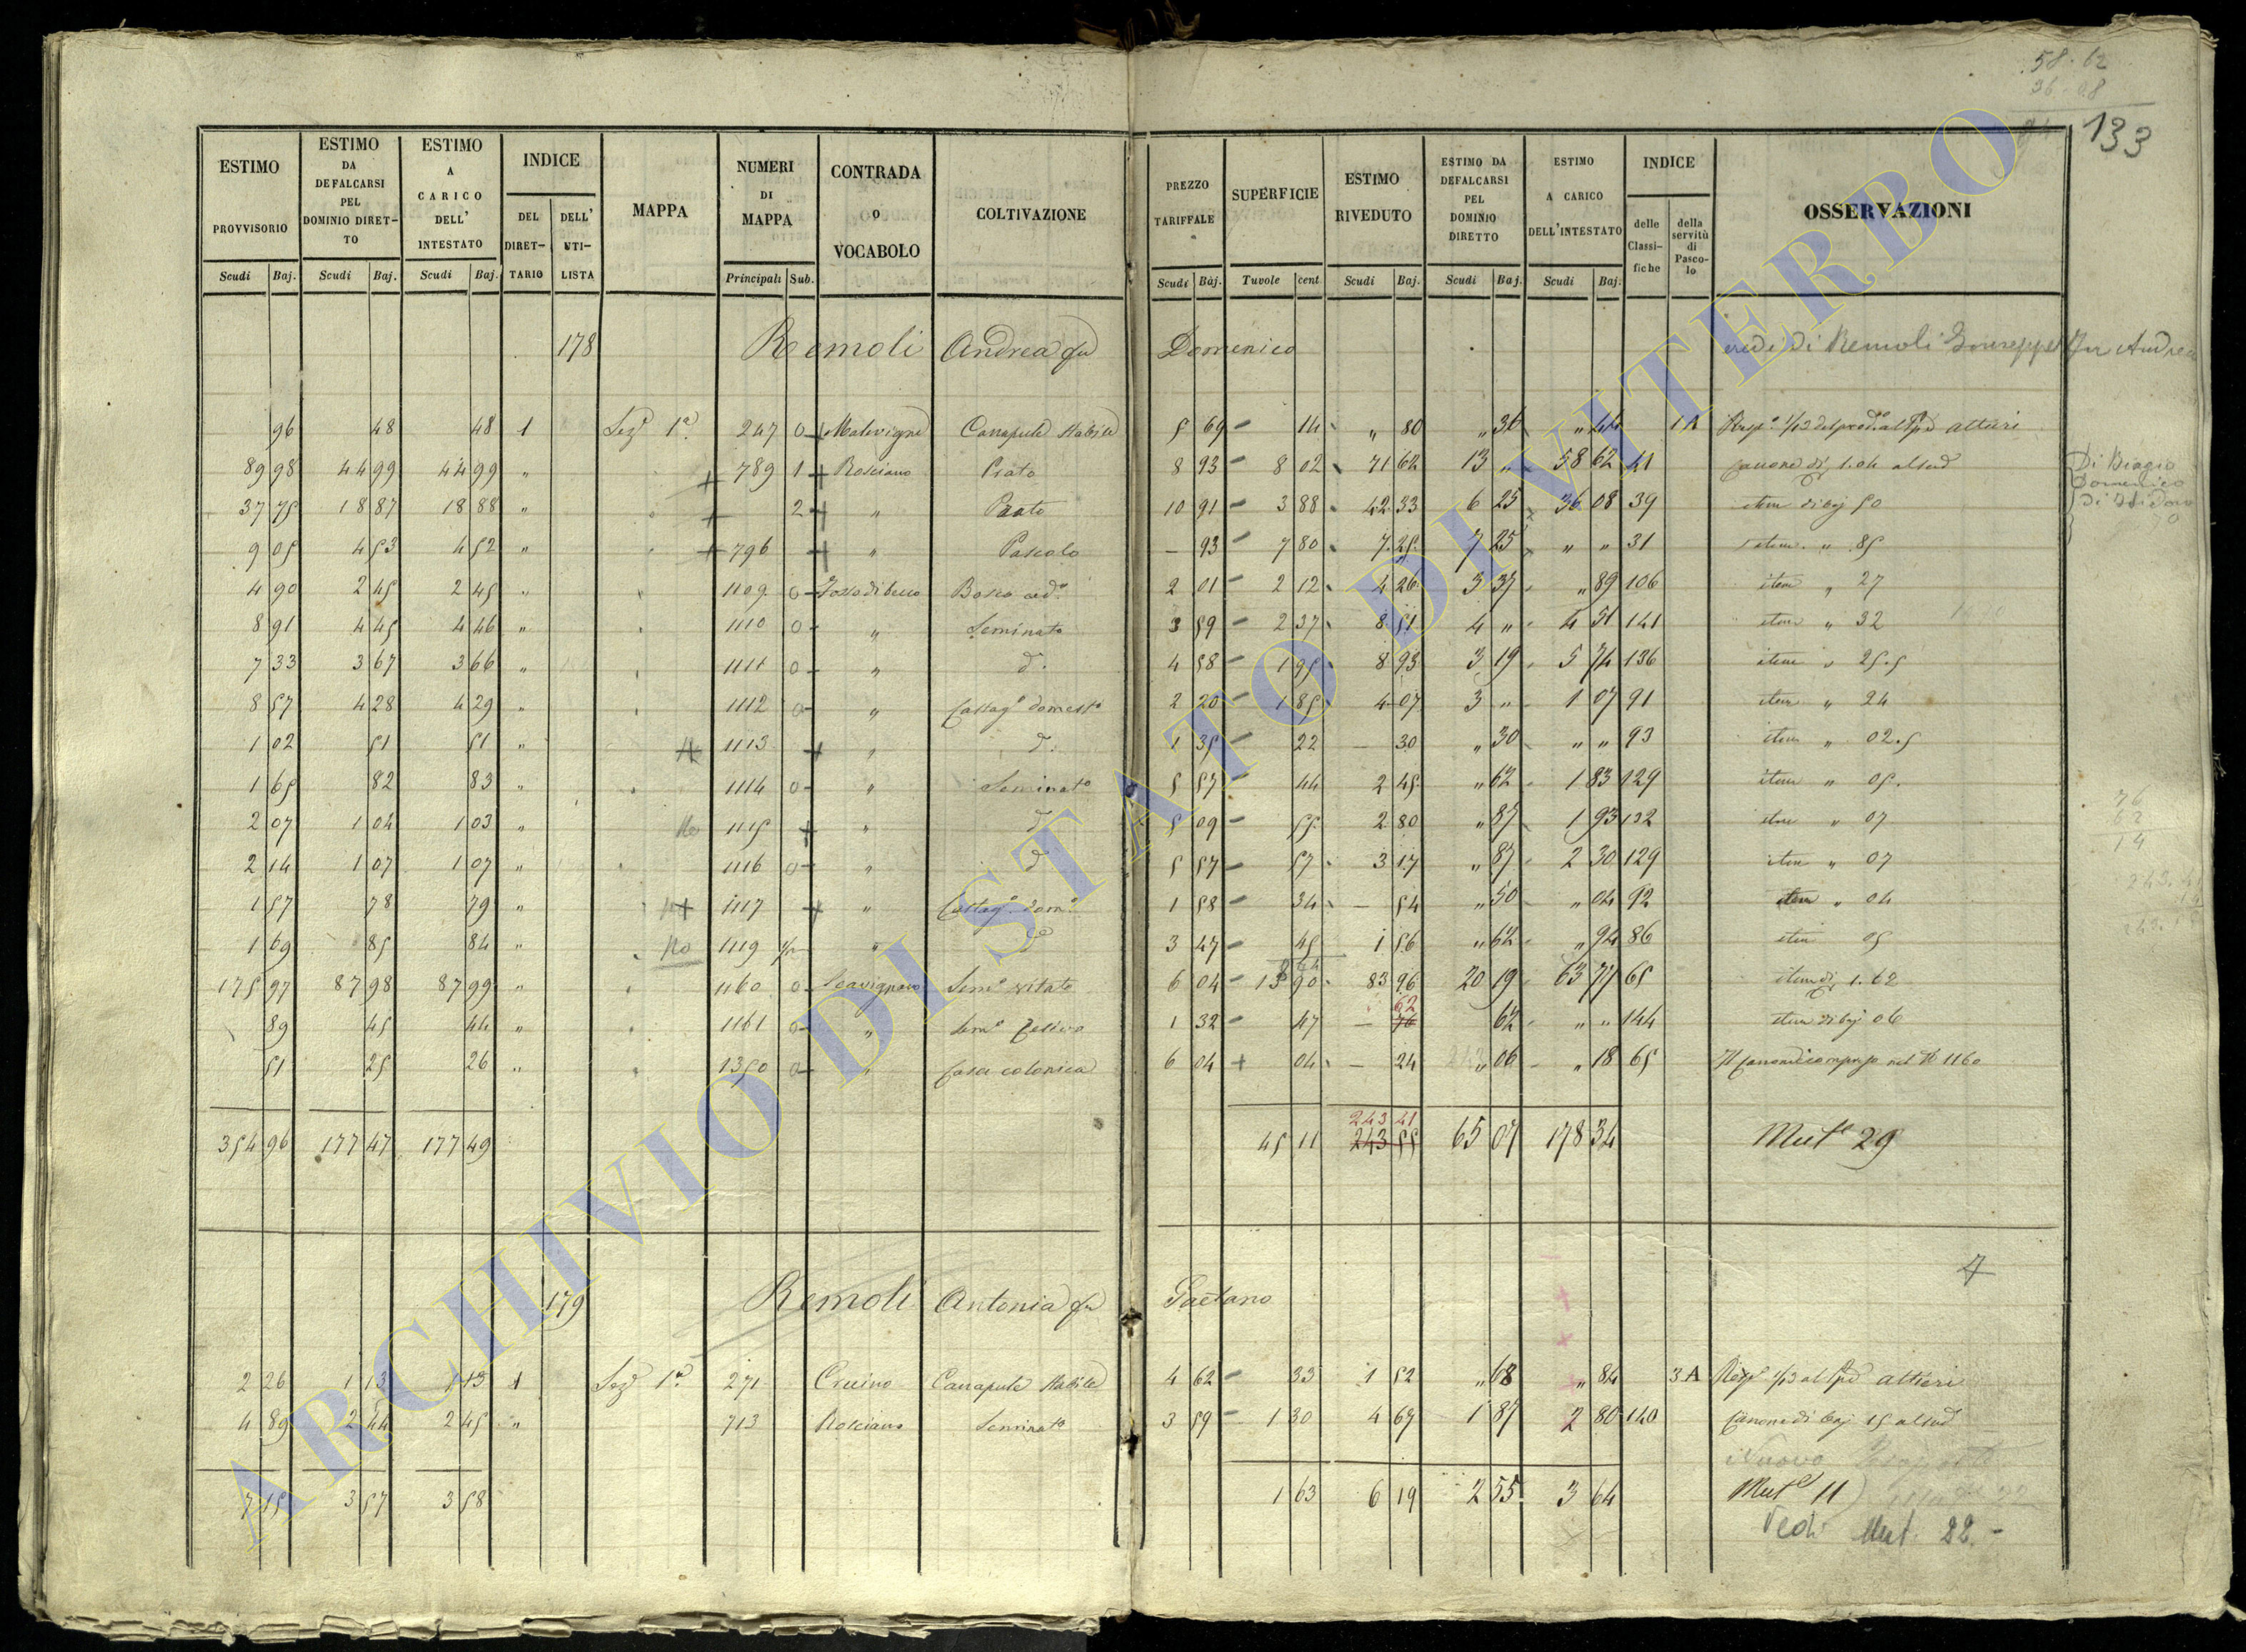 58 . 62
36 - 08
133
ESTIMO PROVVISORIO Scudi Baj. | ESTIMO DA DEFALCARSI PEL DOMINIO DIRETTO Scudi Baj. | ESTIMO A CARICO DELL' INTESTATO Scudi Baj. | INDICE DEL DIRETTARIO DELL' UTILISTA | MAPPA | NUMERI DI MAPPA Principali Sub. | CONTRADA O VOCABOLO | COLTIVAZIONE | PREZZO TARIFFALE Scudi Baj. | SUPERFICIE Tavole cent | ESTIMO RIVEDUTO Scudi Baj. | ESTIMO DA DEFALCARSI PEL DOMINIO DIRETTO Scudi Baj. | ESTIMO A CARICO DELL'INTESTATO Scudi Baj. | INDICE delle Classifiche della servitù di Pascolo | OSSERVAZIONI
178 Remoli Andrea fu Domenico eredi di Remoli Giuseppe fu Andrea
96 | 48 | 48 | 1 | Sez.e 1a. | 247 | 0 | Malevigne | Canapule Stabile | 5 69 | 14 | " 80 | " 36 | " 44 | 1A | Risp.a 1/13 del prod.o al Ppe Altieri
89 98 | 44 99 | 44 99 | " | 789 | 1 | Rosciano | Prato | 8 93 | 8 02 | 71 62 | 13 " | 58 62 | 41 | Canone di 1.04 al sud
Di Biagio
Domenico
37 75 | 18 87 | 18 88 | " | 2 | " | Prato | 10 91 | 3 88 | 42 33 | 6 25 | 36 08 | 39 | item di baj 50
9 05 | 4 53 | 4 52 | " | 796 | " | Pascolo | – 93 | 7 80 | 7 25 | 7 25 | " " | 31 | item " 85
4 90 | 2 45 | 2 45 | " | 1109 | 0 | Fosso di becco | Bosco ced.o | 2 01 | 2 12 | 4 26 | 3 37 | " 89 | 106 | item " 27
8 91 | 4 45 | 4 46 | " | 1110 | 0 | " | Seminato | 3 59 | 2 37 | 8 51 | 4 " | 4 51 | 141 | item " 32
7 33 | 3 67 | 3 66 | " | 1111 | 0 | " | d. | 4 58 | 1 95 | 8 93 | 3 19 | 5 74 | 136 | item " 25.5
8 57 | 4 28 | 4 29 | " | 1112 | 0 | " | Castag.o domest.o | 2 20 | 1 85 | 4 07 | 3 " | 1 07 | 91 | item " 24
1 02 | 51 | 51 | " | 1113 | " | d. | 1 35 | 22 | – 30 | " 30 | " " | 93 | item " 02.5
1 65 | 82 | 83 | " | 1114 | 0 | " | Seminato | 5 57 | 44 | 2 45 | " 62 | 1 83 | 129 | item " 05.
2 07 | 1 04 | 1 03 | " | No | 1115 | " | d | 5 09 | 55 | 2 80 | " 87 | 1 93 | 132 | item " 07
76
62
14
2 14 | 1 07 | 1 07 | " | 1116 | 0 | " | d | 5 57 | 57 | 3 17 | " 87 | 2 30 | 129 | item " 07
1 57 | 78 | 79 | " | 1117 | " | Castag.o dom.o | 1 58 | 34 | – 54 | " 50 | " 04 | 92 | item " 04
1 69 | 85 | 84 | " | No | 1119 | " | d | 3 47 | 45 | 1 56 | " 62 | " 94 | 86 | item 05
175 97 | 87 98 | 87 99 | " | 1160 | 0 | Scavignano | Sem.o vitato | 6 04 | 13 90 | 83 96 | 20 19 | 63 77 | 65 | item di 1.62
89 | 45 | 44 | " | 1161 | 0 | " | Sem.o | 1 32 | 47 | – 76 62 | 62 | " " | 144 | item di baj 06
51 | 25 | 26 | " | 1350 | 0 | " | Casa colonica | 6 04 | 04 | – 24 | " 06 | " 18 | 65 | Il Canone compreso nel N 1160
354 96 | 177 47 | 177 49 | 45 11 | 243 55 243 41 | 65 07 | 178 34 | Mut.e 29
179 Remoli Antonia fu Gaetano
2 26 | 1 13 | 1 13 | 1 | Sez.e 1a. | 271 | Cruino | Canapule Stabile | 4 62 | 33 | 1 52 | " 68 | " 84 | 3A | Risp.a 1/13 al Ppe Altieri
4 89 | 2 44 | 2 45 | " | 713 | Rosciano | Seminato | 3 59 | 1 30 | 4 67 | 1 87 | 2 80 | 140 | Canone di baj 15 al sud
Nuovo
7 15 | 3 57 | 3 58 | 1 63 | 6 19 | 2 55 | 3 64 | Mut.e 11
Vedi Mut. 22.-
ARCHIVIO DI STATO DI VITERBO